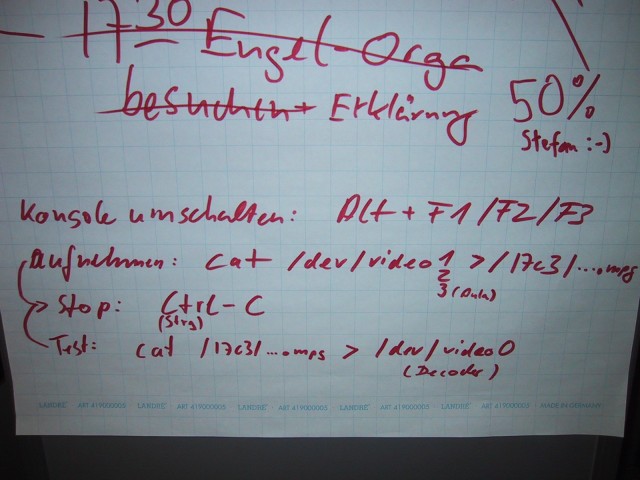 17³⁰ Engel-Orga
besuchen + Erklärung
50%
Stefan :-)
Konsole umschalten: Alt + F1/F2/F3
Aufnehmen: cat /dev/video1 > /17c3/....mpg
2
3 (Aula)
Stop: Ctrl-C
(Strg)
Test: cat /17c3/....mpg > /dev/video0
(Decoder)
LANDRÉ ART 419000005 LANDRÉ ART 419000005 LANDRÉ ART 419000005 LANDRÉ ART 419000005 MADE IN GERMANY